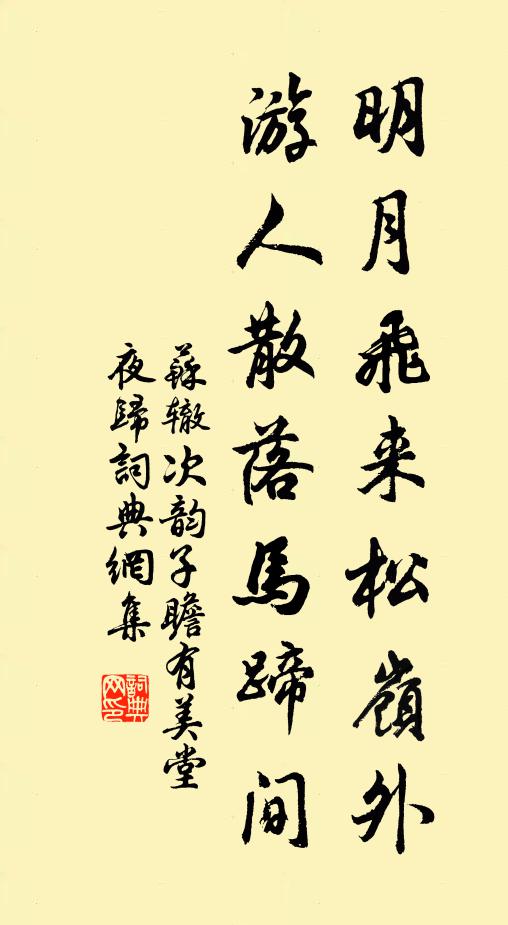 明月飛来松嶺外
游人散落馬蹄間
蘇轍次韵子瞻有美堂
夜歸詞典網集
詞典
网印